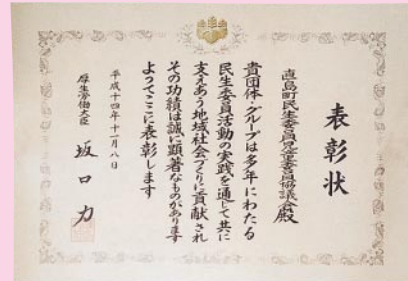 表彰状
直島町民生委員児童委員協議会殿
貴団体・グループは多年にわたる
民生委員活動の実践を通して共に
支えあう地域社会づくりに貢献され
その功績は誠に顕著なものがあります
よってここに表彰します
平成十四年十一月八日
厚生労働大臣 坂口力